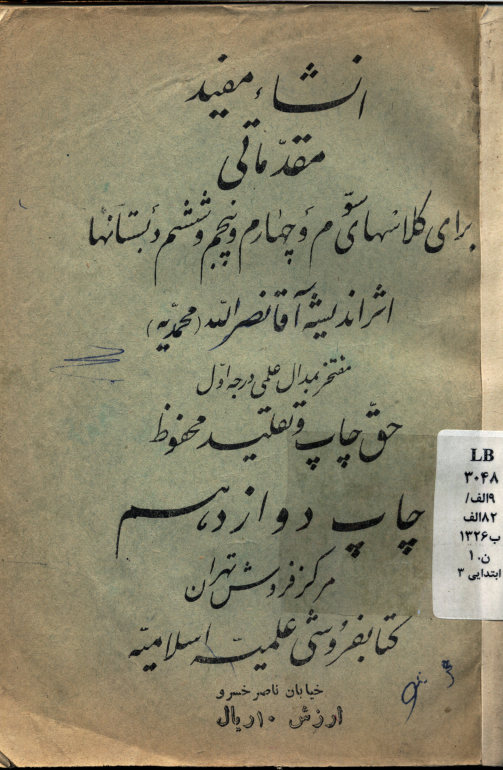 انشاء مفید
مقدّماتی
برای کلاسهای سوّم و چهارم و پنجم و ششم دبستانها
اثر اندیشه آقا نصرالله (محمدیّه)
مفتخر بمدال علمی درجه اوّل
حقّ چاپ و تقلید محفوظ
چاپ دوازدهم
مرکز فروش تهران
کتابفروشی علمیّه اسلامیّه
خیابان ناصر خسرو
ارزش ۱۰ ریال
LB
۳۰۴۸
۹الف/
۸۲الف
ب۱۳۲۶
ن.۱
ابتدایی ۳